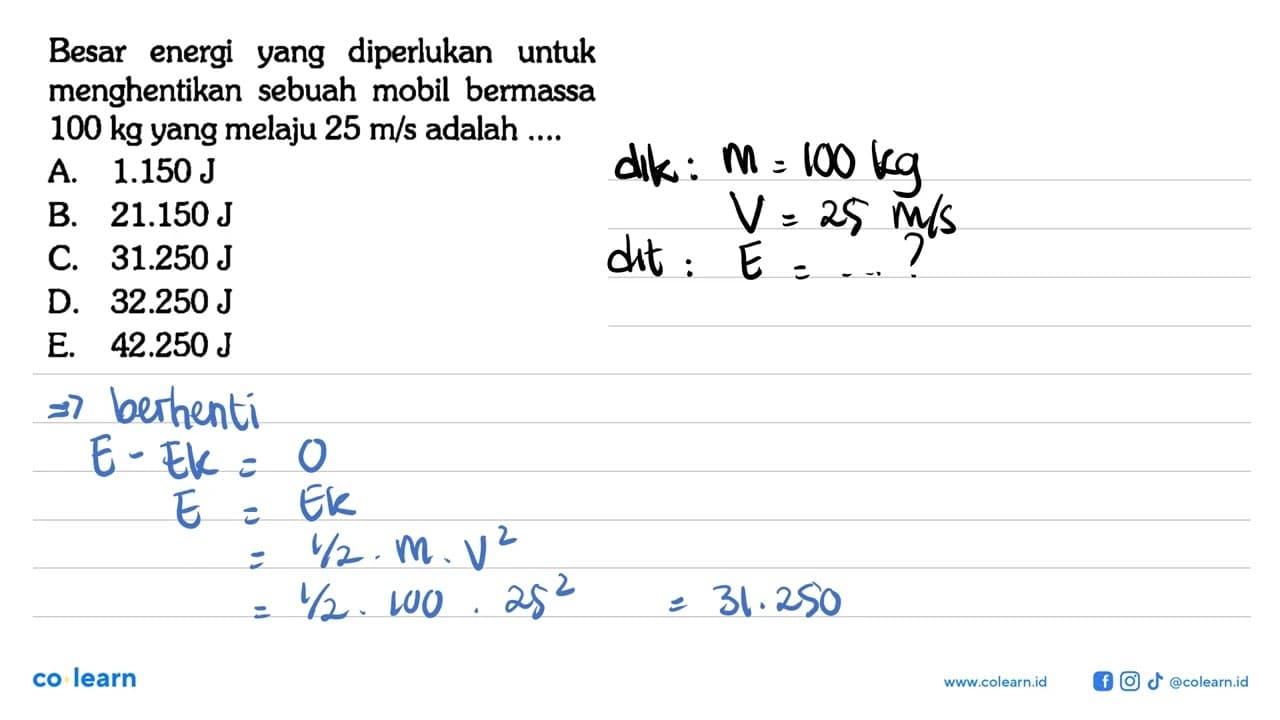 Besar energi yang diperlukan untuk
menghentikan sebuah mobil bermassa
100 kg yang melaju 25 m/s adalah ....
A. 1.150 J
B. 21.150 J
C. 31.250 J
D. 32.250 J
E. 42.250 J
dik : m = 100 kg
V = 25 m/s
dit : E = ....?
=> berhenti
E - Ek = 0
E = Ek
= 1/2 . m . v²
= 1/2 . 100 . 25² = 31.250
co learn
www.colearn.id @colearn.id